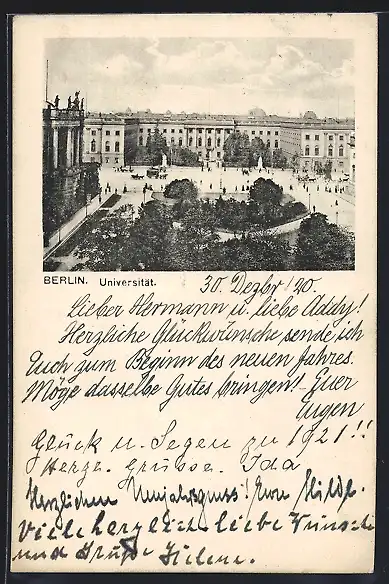 BERLIN. Universität.
30. Dezbr. '20.
Lieber Hermann u. liebe Addy!
Herzliche Glückwünsche sende ich
Euch zum Beginn des neuen Jahres.
Möge dasselbe Gutes bringen! Euer
Eugen
Glück u. Segen zu 1921!!
Herzl. Grüsse. Ida
Herzlichen Neujahrsgruss! Eure Hilde.
Viele herzlich liebe Wünsche
und Grüße Helene.